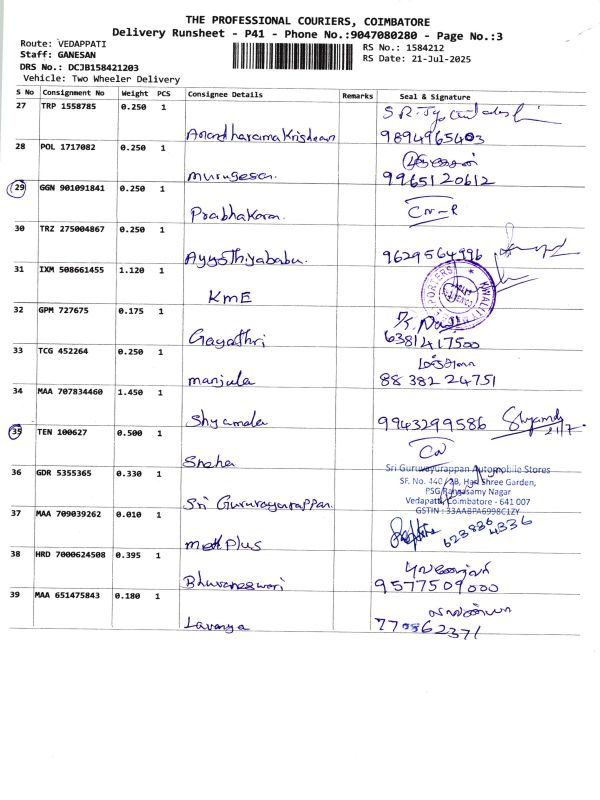 THE PROFESSIONAL COURIERS, COIMBATORE
Delivery Runsheet - P41 - Phone No.:9047080280 - Page No.:3
Route: VEDAPPATI
Staff: GANESAN
RS No.: 1584212
DRS No.: DCJB158421203
RS Date: 21-Jul-2025
Vehicle: Two Wheeler Delivery
S No Consignment No Weight PCS Consignee Details Remarks Seal & Signature
27 TRP 1558785 0.250 1
Anandharamakrishnan 9894965403
28 POL 1717082 0.250 1
Murugesan 9965120612
29 GGN 901091841 0.250 1
Prabhakaran
30 TRZ 275004867 0.250 1
AyyoThiyababu. 9629564996
31 IXM 508661455 1.120 1
KME
32 GPM 727675 0.175 1
Gayathri 6381417500
33 TCG 452264 0.250 1
மஞ்சுளா
manjula 88382 24751
34 MAA 707834460 1.450 1
Shyamala 9943299586 Shyamala
21/7
35 TEN 100627 0.500 1
Sneha
Sri Guruvayurappan Automobile Stores
36 GDR 5355365 0.330 1
SF. No. 440/2B, Hari Shree Garden,
PSG Rangasamy Nagar
Vedapatti, Coimbatore - 641 007
GSTIN : 33AABPA6998C1ZY
Sri Guruvayurappan
37 MAA 709039262 0.010 1
MedPlus 6238364336
38 HRD 7000624508 0.395 1
புவனேஸ்வரி
Bhuvaneswari 9577509000
39 MAA 651475843 0.180 1
லாவண்யா
Lavanya 770862371